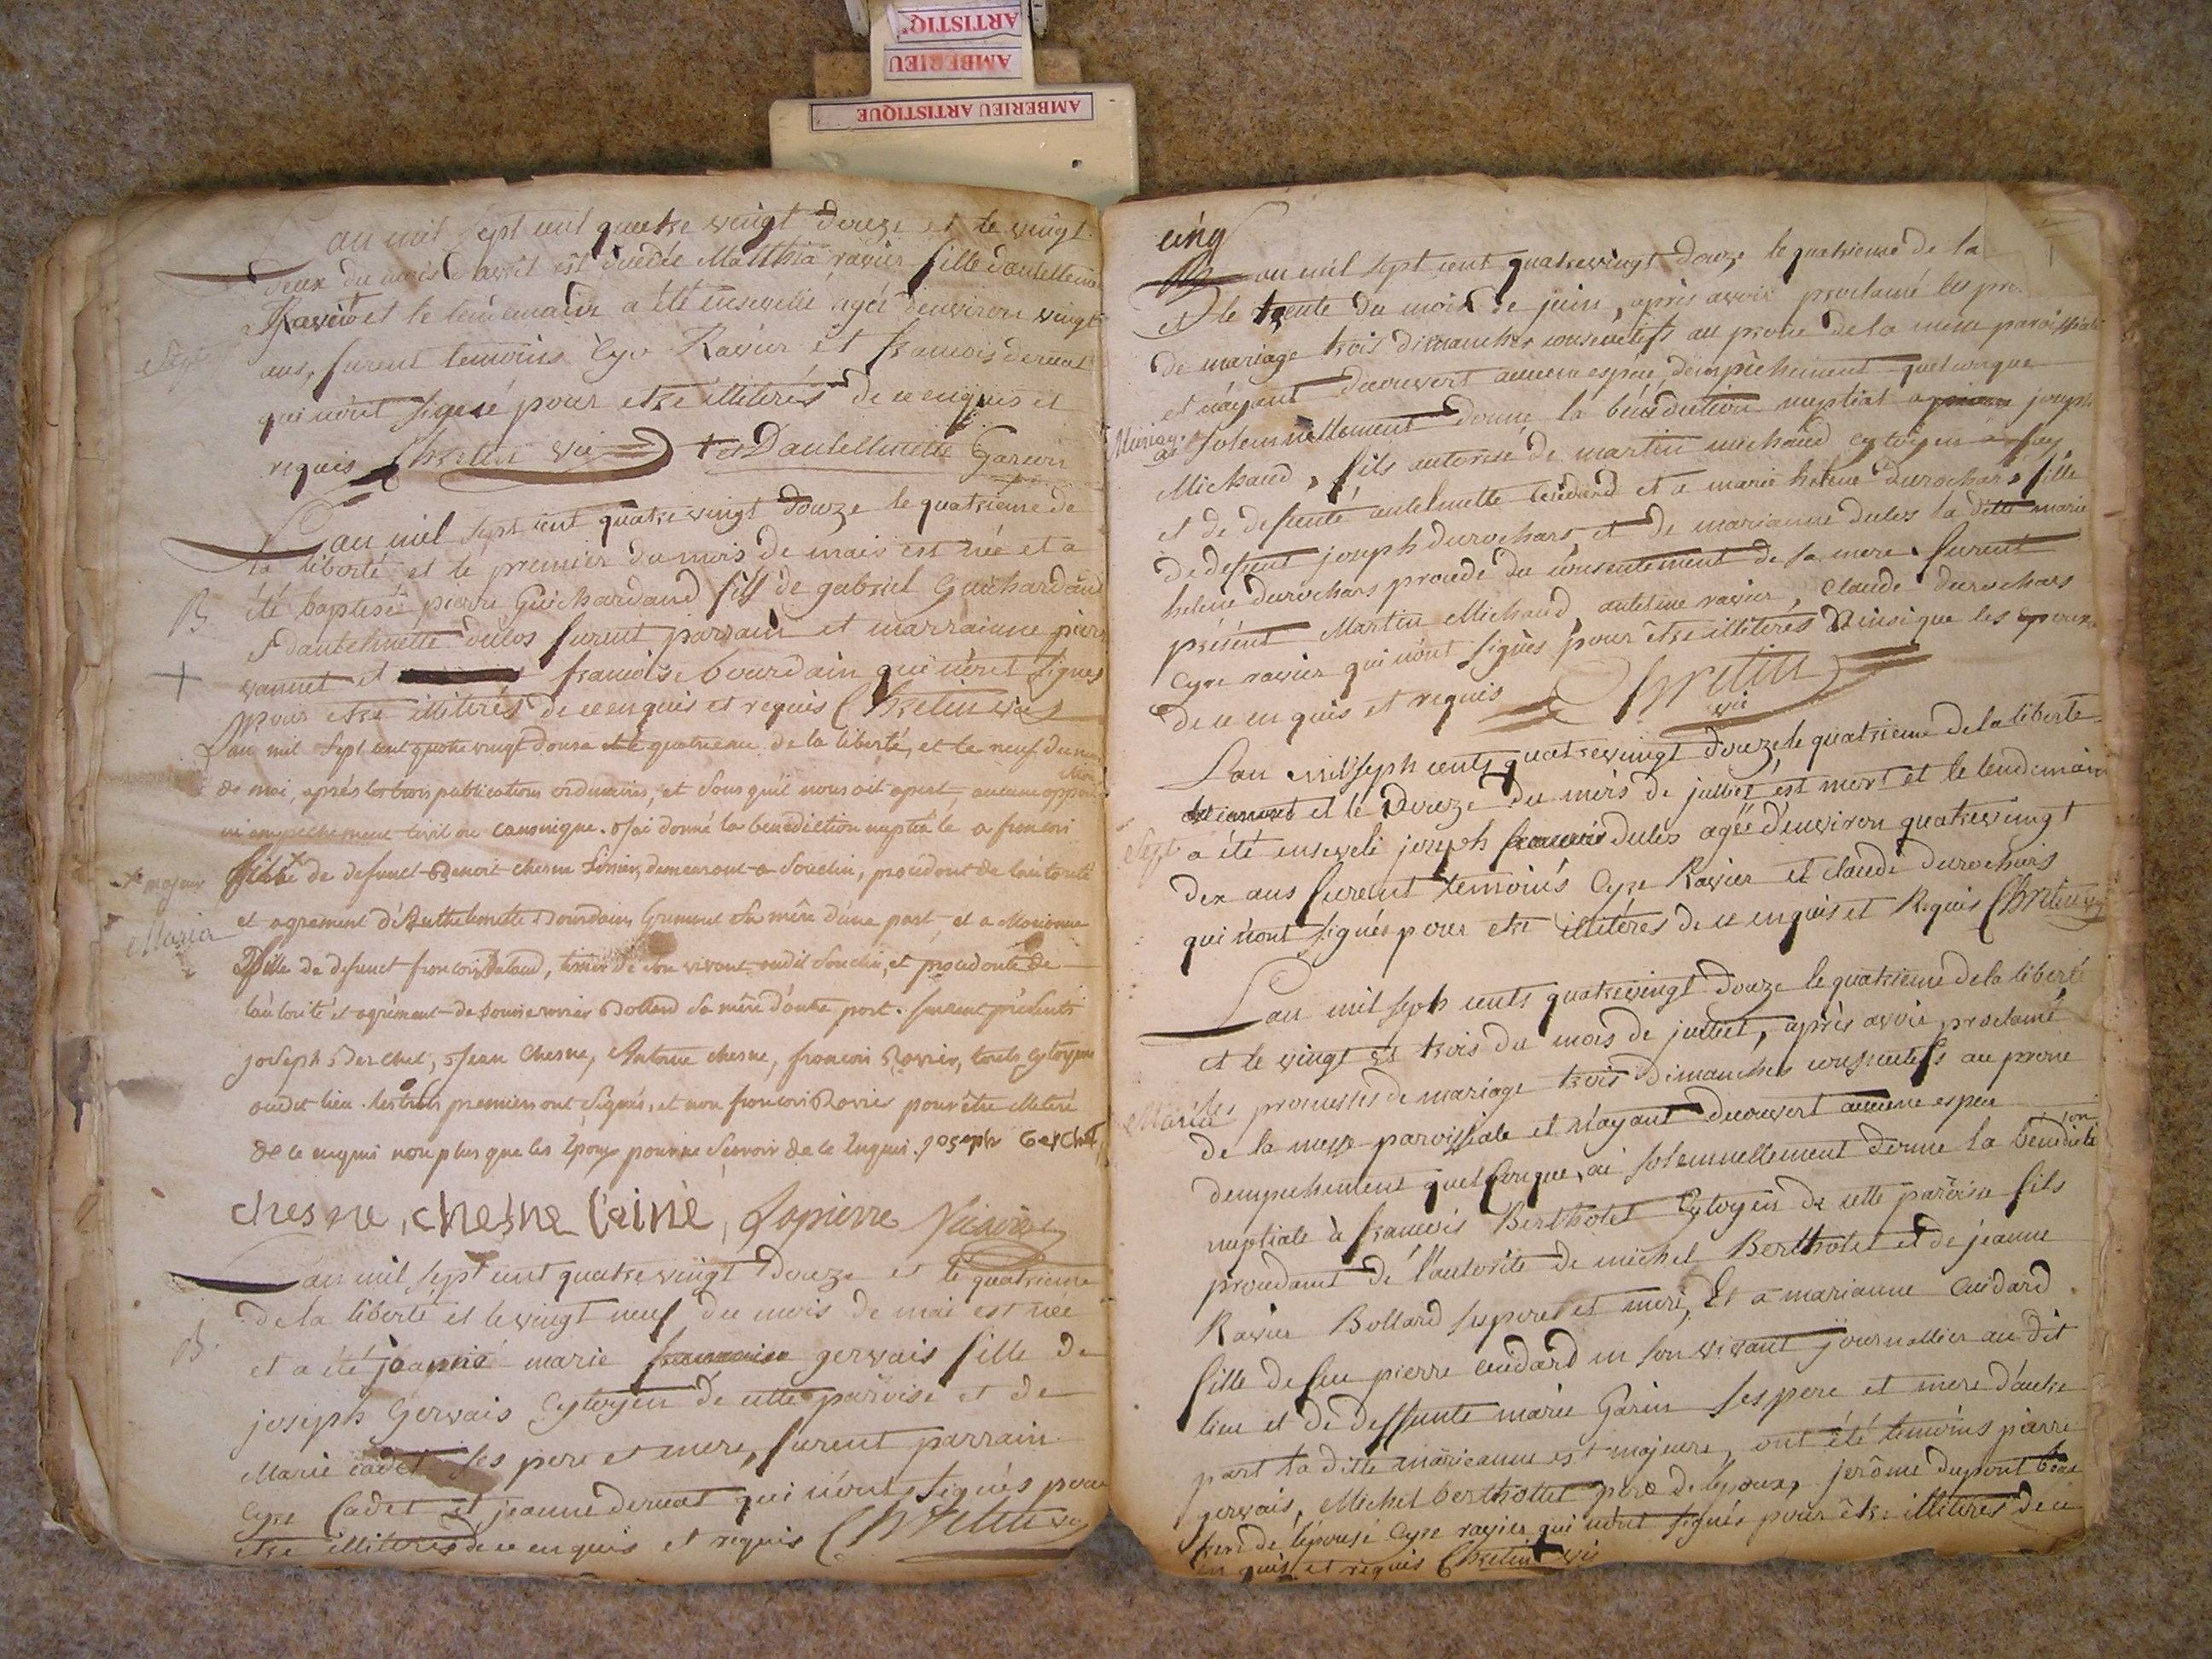 ARTISTIQ
AMBERIEU
AMBERIEU ARTISTIQUE
L'an mil sept cent quatre vingt douze et le vingt
deux du mois d'avril est décédée Matthia ravier fille d'antellme
Ravier et le lendemain a été ensevelie agée d'environ vingt
ans, furent temoins Cyr Ravier et francois dernat
qui n'ont signé pour etre illiterés de ce enquis et
requis Chretin vic
L'an mil sept cent quatre vingt douze le quatrieme de
la liberté et le premier du mois de mais est née et a
B
été baptisé pierre Guichardand fils de gabriel Guichardand
& d'antelmette dulos furent parrain et marrainne pierre
vannet et francoise bourdain qui n'ont signés
pour etre illiterés de ce enquis et requis Chretin vic
L'an mil sept cent quatre vingt douze le quatrieme de la liberté, et le neuf du mois
de mai, aprés les trois publications ordinaires, et sans qu'il nous ait aparut, aucune opposition
ni empechement civil ou canonique. J'ai donné la benediction nuptiale a francois
majeur
fils de defunct Benoit chesne demeurant a Souclin, procédant de l'autorité
et agrement d'Anthelmette Bourdain sa mère d'une part et a Marianne
Maria
fille de defunct francois Bolland, de son vivant audit Souclin, et procedante de
l'autorité et agrément de Louise ravier Bolland sa mère d'autre part. furent présents
joseph Berchet, Jean Chesne, Antoine chesne, francois Ravier, touts cytoyens
audit lieu. les trois premiers ont signés, et non francois Ravier pour être illiteré
de ce enquis non plus que les Epoux pour ne scavoir de ce Enquis. joseph Berchet
chesne, chesne l'ainé, Lapierre Vicaire
L'an mil sept cent quatre vingt douze et le quatrieme
de la liberté et le vingt neuf du mois de mai est née
B.
et a été marie gervais fille de
joseph Gervais Cytoyen de cette paroise et de
Marie cadet ses pere et mere, furent parrain
Cyre Cadet et jeanne dernat qui n'ont signés pour
etre illiterés de ce enquis et requis Chretin vic
cinq
L'an mil sept cent quatre vingt douze le quatrieme de la
et le trente du mois de juin, après avoir proclamé les pro
de mariage trois dimanches consecutifs au prone de la messe paroissiale
et n'ayant découvert aucune espece d'empechement quelconque
Mariage
ai solemnellement donné la bénédiction nuptial a joseph
Michaud, fils autorisé de martin michaud cytoyen
et de defunte antelmette cuidard et a marie helene durochars fille
de defunt joseph durochars et de marianne dulos la ditte marie
helene durochars procede du consentement de sa mere. furent
présent Martin Michaud, antelme ravier, Claude durochars
Cyre ravier qui n'ont signés pour être illiterés ainsi que les epoux
de ce enquis et requis Chretin
vic
L'an mil seph cents quatre vingt douze, le quatrieme de la liberté
et le douze du mois de juillet est mort et le lendemain
Sept
a été enseveli joseph dulos agée d'environ quatre vingt
dex ans furent temoins Cyre Ravier et claude durochars
qui n'ont signés pour etre illitérés de ce enquis et Requis Chretin vic
L'an mil seph cents quatre vingt douze le quatrieme de la liberté
et le vingt et trois du mois de juillet, après avoir proclamé
Maria
les promesses de mariage trois dimanches consecutifs au prone
de la messe paroissiale et n'ayant decouvert aucune espece
d'empechement quelconque, ai solemnellement donne la bénédiction
nuptiale à francois Berthotet Cytoyen de cette paroisse fils
procedant de l'autorité de michel Berthotet et de jeanne
Ravier Bollard ses pere et mere, Et a marianne Cuidard
fille de feu pierre cuidard en son vivant journallier au dit
lieu et de deffunte marie Garin ses pere et mere d'autre
part la ditte marieanne est majeure, ont été temoins pierre
gervais, Michel berthottet pere de l'epoux, jerôme dupont beau
frere de l'épouse Cyre ravier qui n'ont signés pour être illiterés de ce
enquis et requis Chretin vic